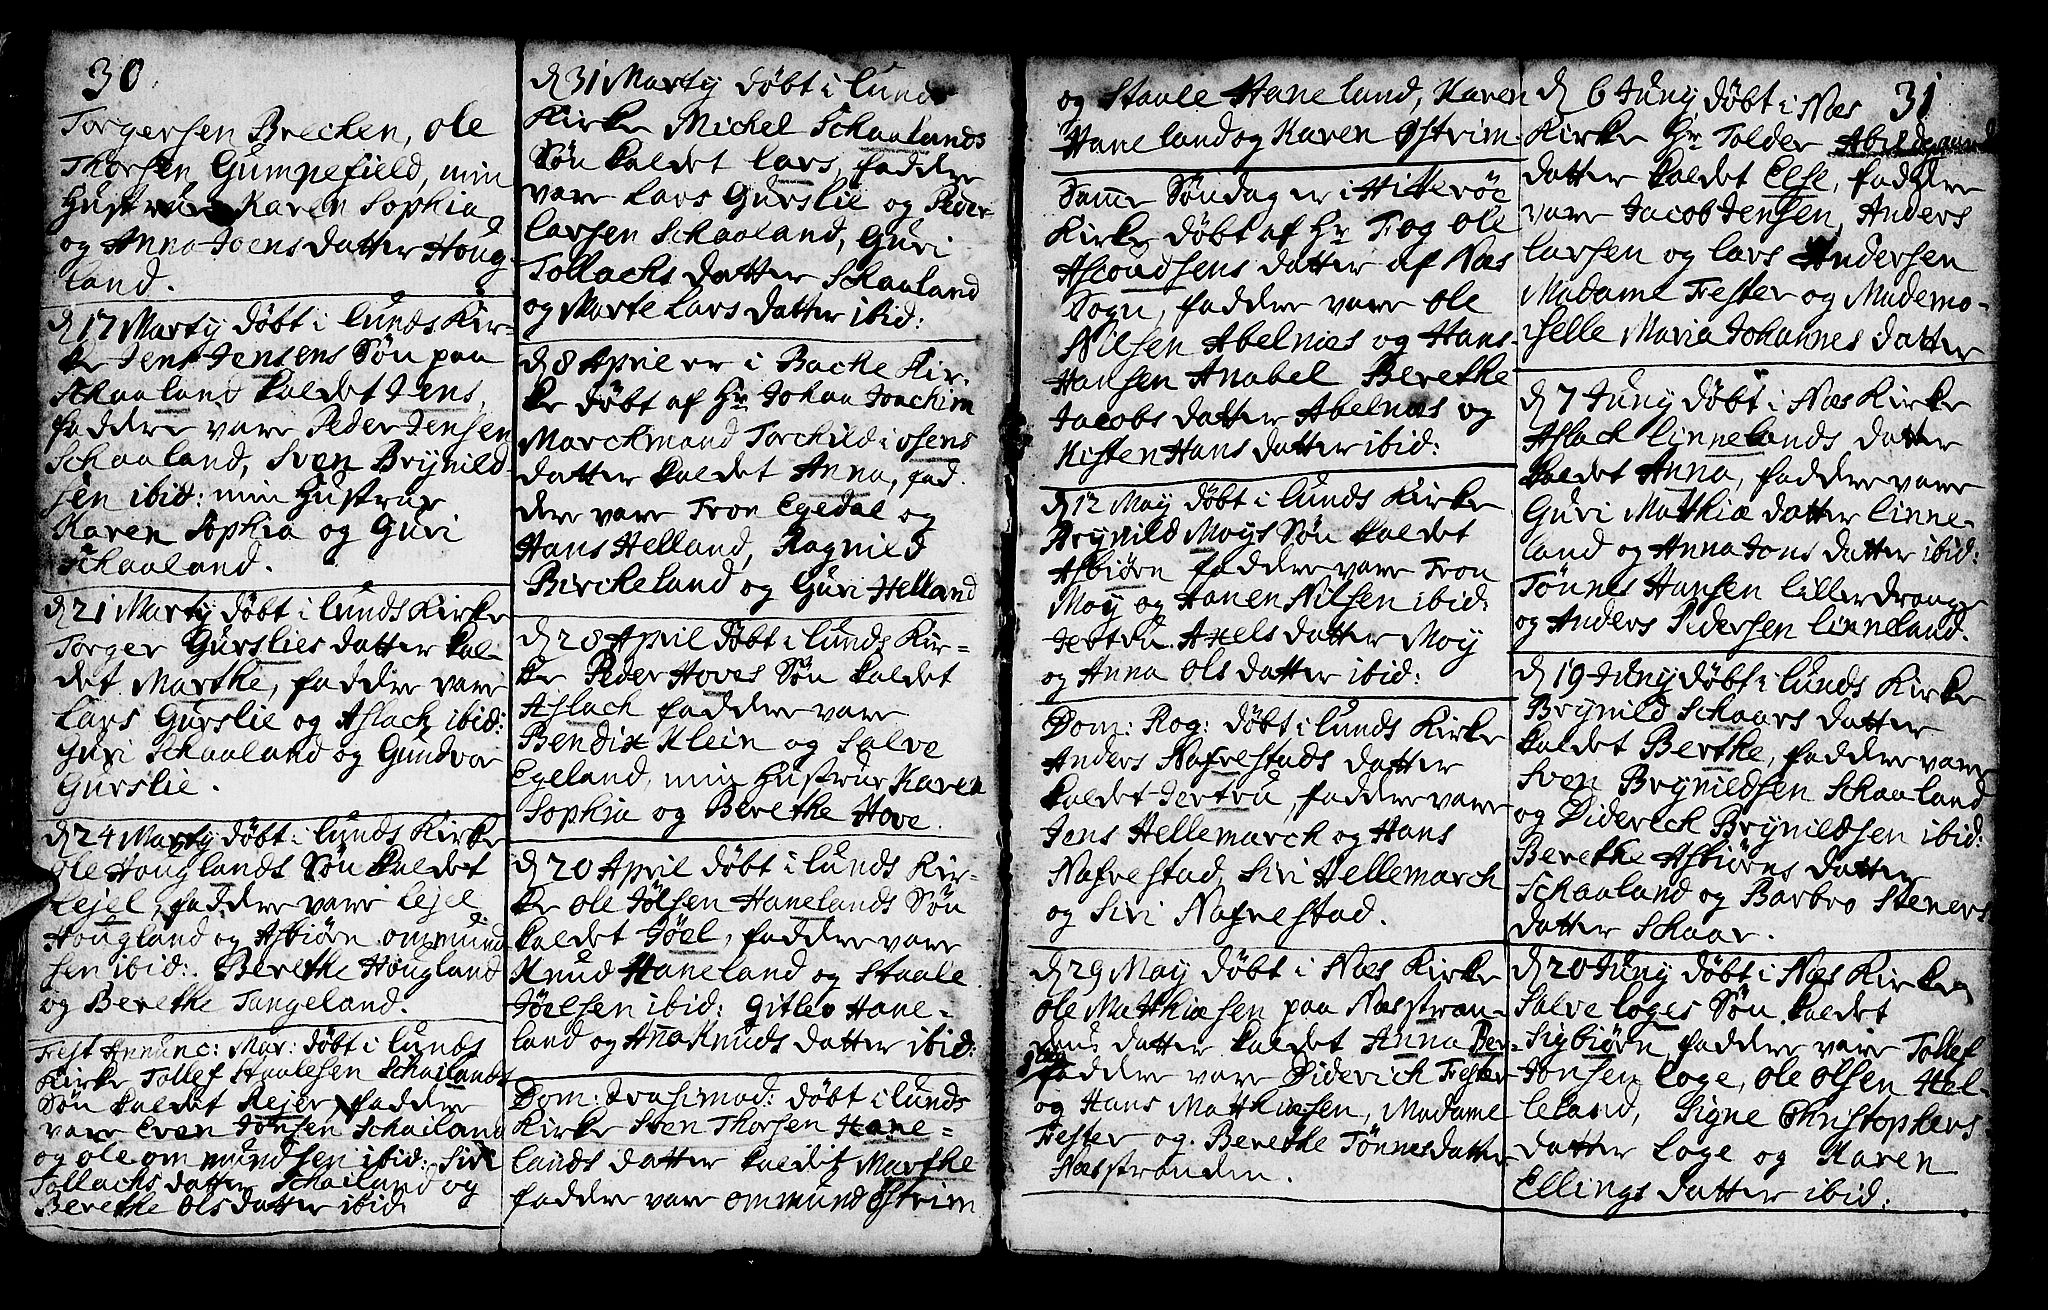 30
Torgersen Brecken, ole
Thorsen Gumpefield, min
Hustrue Karen Sophia,
og Anna Joens datter Houg-
land.
d 17 Marty döbt i Lunds Kir-
ke Jens Jensens Sön paa
Schaaland kaldet Jens,
faddre vare Peder Jensen
Schaaland, Sven Brynild-
sen ibid: min Hustrue
Karen Sophia og Guri
Schaaland.
d 21 Marty döbt i Lunds Kirke
Torger Gurslies datter kal-
det Marthe, faddre vare
Lars Gurslie og Aslach ibid:
Guri Schaaland og Gundvor
Gurslie.
d 24 Marty döbt i Lunds Kirke
Ole Houglands Sön kaldet
Lejel, faddre vare Lejel
Hougland og Asbiörn ommund
sen ibid: Berethe Hougland
og Berethe Tangeland.
Fest Annunc: Mar: döbt i Lunds
Kirke Tollef Staalesen Schailands
Sön kaldet Rejer, faddre
vare Even Jonsen Schailand
og ole ommundsen ibid: Siri
Tollachs datter Schailand og
Berethe Ols datter ibid:
d 31 Marty döbt i Lunds
Kirke Michel Schaalands
Sön kaldet Lars, faddre
vare Lars Gurslie og Peder
Larsen Schaaland, Guri
Tollachs datter Schaaland
og Marte Lars datter ibid:
d 8 April er i Backe Kir-
ke döbt af Hr Johan Joachim
Marckmand Torchild i osens
datter kaldet Anna, fad-
dre vare Tron Egedal og
Hans Helland, Ragnild
Birckeland og Guri Helland
d 20 April döbt i Lunds Kir-
ke Peder Hoves Sön kaldet
Aslach faddre vare
Bendix Klein og Salve
Egeland, min Hustrue Karen
Sophia og Berethe Hove.
d 20 April döbt i Lunds Kir-
ke ole Jölsen Hanelands Sön
kaldet Jöel, faddre vare
Knud Haneland og Staale
Jöelsen ibid: Gitlev Hane-
land og Anna Knuds datter ibid:
Dom: Qvasimod: döbt i Lunds
Kirke Sven Thorsen Hane-
lands datter kaldet Marthe
faddre vare ommund Östrim
og Staale Haneland, Karen
Haneland og Karen Östrim.
Samme Söndag er i Hitteröe
Kirke döbt af Hr Fog ole
Asoudsens datter af Næs
Sogn, faddre vare ole
Nilsen Abelnæs og Hans
Hansen Anabel Berethe
Jacobs datter Abelnæs og
Kisten Hans datter ibid:
d 12 May döbt i Lunds Kirke
Brynild Moys Sön kaldet
Asbiörn faddre vare Tron
Moy og Hanen Nilsen ibid:
Jertru Axels datter Moy
og Anna ols datter ibid:
Dom: Rog: döbt i Lunds Kirke
Anders Nafrestads datter
kaldet Jertru, faddre vare
Jens Hellemarch og Hans
Nafrestad, Siri Hellemarch
og Siri Nafrestad.
d 29 May döbt i Næs Kirke
ole Mathiesen paa Næsstran-
dens datter kaldet Anna
faddre vare Diderich Fester
og Hans Mathiesen, Madame
Fester og Berethe Tönnes datter
Næsstranden.
31
d 6 Juny döbt i Næs
Kirke Hr Tolder Abildgaards
datter kaldet Else, faddre
vare Jacob Jensen, Anders
Larsen og Lars Andersen
Madame Fester og Mademo-
iselle Maria Johannes datter
d 7 Juny döbt i Næs Kirke
Aslach Linnelands datter
kaldet Anna, faddre vare
Guri Mathiæ datter Linne-
land og Anna Jons datter ibid:
Tönnes Hansen Lilledrange
og Anders Pedersen Linneland.
d 19 Juny döbt i Lunds Kirke
Brynild Schaars datter
kaldet Berthe, faddre vare
Sven Brynildsen Schaaland
og Didereck Brynildsen ibid:
Berethe Asbiörns datter
Schaaland og Barbro Steners
datter Schaar.
d 20 Juny döbt i Næs Kirke
Salve Loges Sön kaldet
Sigbiörn faddre vare Tollef
Jonsen Loge, ole olsen Hel-
leland, Signe Christophers
datter Loge og Karen
Ellings datter ibid: